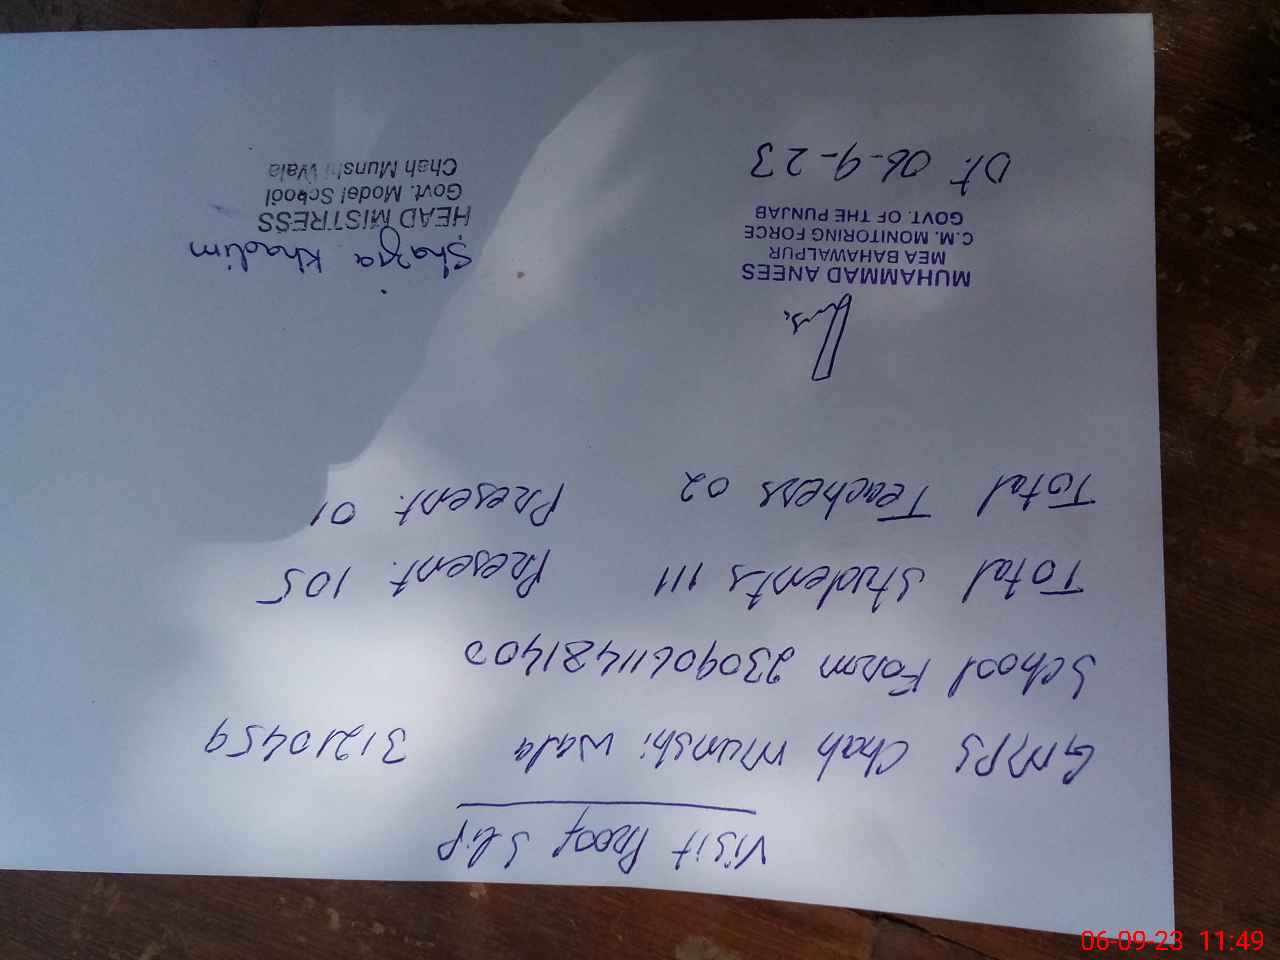 Visit Proof Slip
GMPS Chah Munshi Wala 31210459
School Form 2309061148140
Total Students 111 Present. 105
Total Teachers 02 Present. 01
MUHAMMAD ANEES
MEA BAHAWALPUR
C.M. MONITORING FORCE
GOVT. OF THE PUNJAB
Dt. 06-9-23
Shazia Khadim
HEAD MISTRESS
Govt. Model School
Chah Munshi Wala
06-09-23 11:49